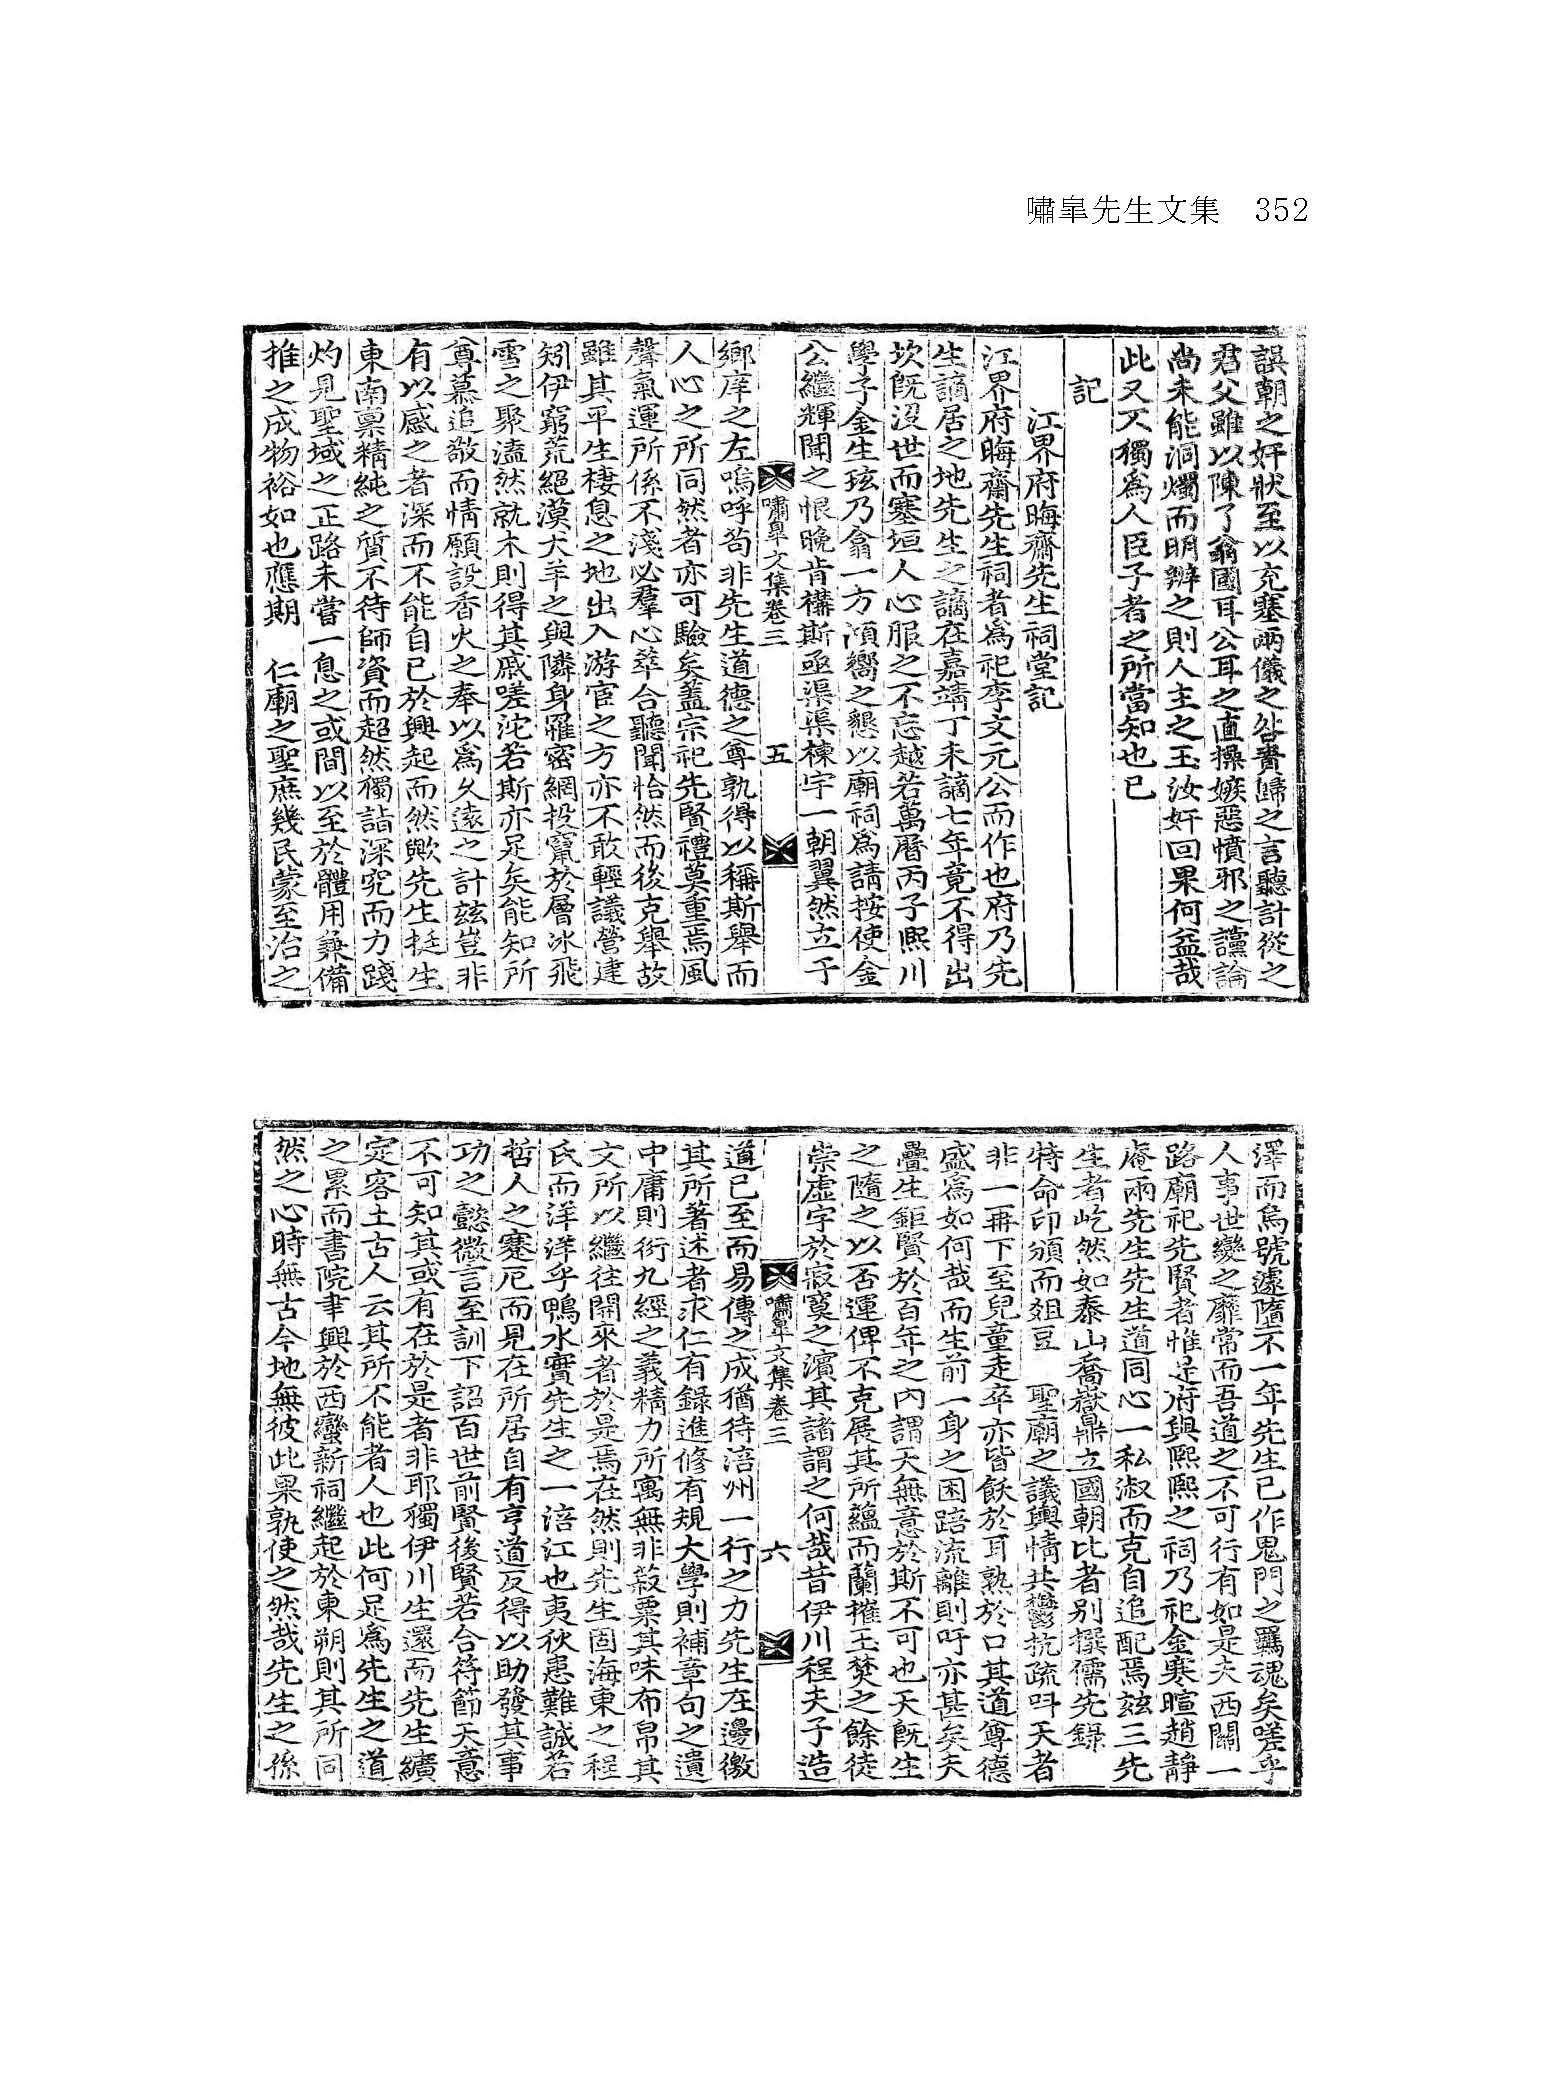 嘯皐先生文集　352
誤朝之奸狀至以充塞兩儀之咎責歸之言聽計從之
君父雖以陳了翁國耳公耳之直操嫉惡憤邪之讜論
尚未能洞燭而明辨之則人主之玉汝奸回果何益哉
此又不獨爲人臣子者之所當知也已
記
江界府晦齋先生祠堂記
江界府晦齋先生祠者爲祀李文元公而作也府乃先
生謫居之地先生之謫在嘉靖丁未謫七年竟不得出
坎旣沒世而塞垣人心服之不忘越若萬曆丙子熙川
學子金生玹乃翕一方湏嚮之懇以廟祠爲請按使金
公繼輝聞之恨晩肯構斯亟渠渠棟宇一朝翼然立于
嘯皐文集卷三　五
鄕庠之左嗚呼苟非先生道德之尊孰得以稱斯擧而
人心之所同然者亦可驗矣蓋宗祀先賢禮莫重焉風
聲氣運所係不淺必羣心萃合聽聞恰然而後克擧故
雖其平生棲息之地出入游宦之方亦不敢輕議營建
矧伊窮荒絕漠犬羊之與隣身罹密網投竄於層冰飛
雪之聚溘然就木則得其戚嗟沱若斯亦足矣能知所
尊慕追敬而情願設香火之奉以爲久遠之計玆豈非
有以感之者深而不能自已於興起而然歟先生挺生
東南稟精純之質不待師資而超然獨詣深究而力踐
灼見聖域之正路未嘗一息之或間以至於體用兼備
推之成物裕如也應期　仁廟之聖庶幾民蒙至治之
澤而烏號遽隨不一年先生已作鬼門之羈魂矣嗟乎
人事世變之靡常而吾道之不可行有如是夫西關一
路廟祀先賢者惟是府與熙熙之祠乃祀金寒暄趙靜
庵兩先生先生道同心一私淑而克自追配焉玆三先
生者屹然如泰山喬嶽鼎立國朝比者別撰儒先錄
特命印頒而俎豆　聖廟之議輿情共鬱抗疏叫天者
非一再下至兒童走卒亦皆飫於耳熟於口其道尊德
盛爲如何哉而生前一身之困踣流離則吁亦甚矣夫
疊生鉅賢於百年之內謂天無意於斯不可也天旣生
之隨之以否運俾不克展其所蘊而蘭摧玉焚之餘徒
崇虛宇於寂寞之濱其諸謂之何哉昔伊川程夫子造
嘯皐文集卷三　六
道已至而易傳之成猶待涪州一行之力先生在邊徼
其所著述者求仁有錄進修有規大學則補章句之遺
中庸則衍九經之義精力所寓無非菽粟其味布帛其
文所以繼往開來者於是焉在然則先生固海東之程
氏而洋洋乎鴨水實先生之一涪江也夷狄患難誠若
哲人之蹇厄而見在所居自有亨道反得以助發其事
功之懿微言至訓下詔百世前賢後賢若合符節天意
不可知其或有在於是者非耶獨伊川生還而先生纊
定客土古人云其所不能者人也此何足爲先生之道
之累而書院聿興於西蠻新祠繼起於東朔則其所同
然之心時無古今地無彼此果孰使之然哉先生之孫